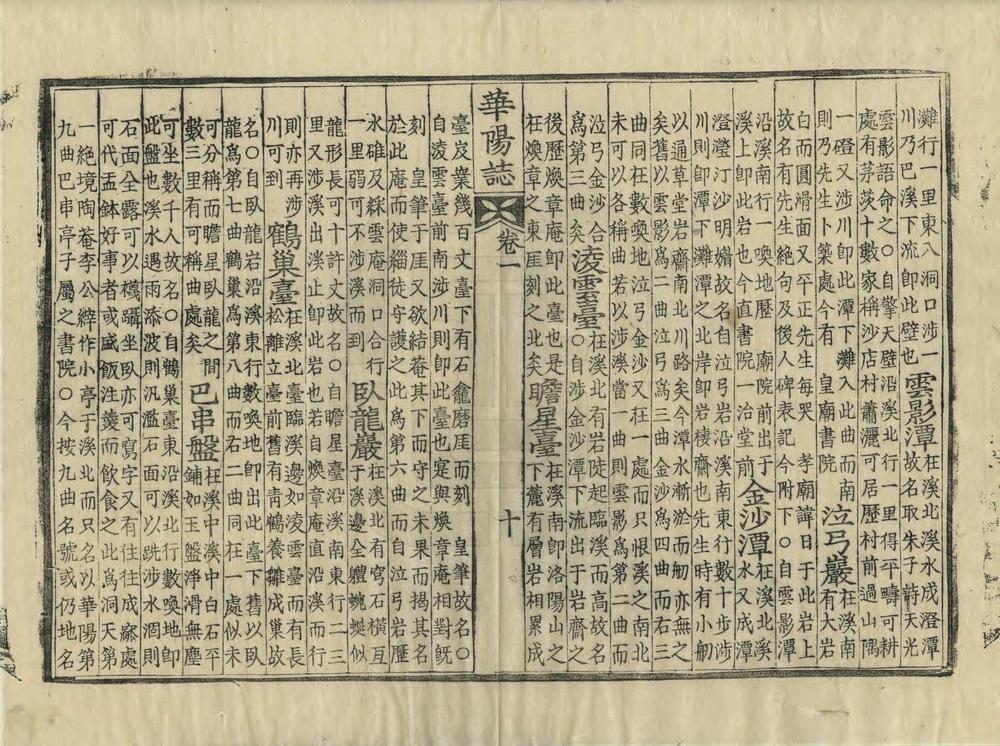 灘行一里東八洞口涉一
川乃巴溪下流即此壁也
雲影潭
在溪北溪水成澄潭
故名取朱子詩天光
雲影語命之○自擎天壁沿溪北行一里得平疇可耕
處有茅茨十數家稱沙店村蕭灑可居歷村前過山隅
一磴又涉川即此潭下灘入此曲而南
則乃先生卜築處今有 皇廟書院
泣弓巖
在溪南
有大岩
白而圓滑面又平正先生每哭 孝廟諱日于此岩上
故名有先生絶句及後人碑表記今附下○自雲影潭
沿溪南行一喚地歷 廟院前出于
溪上即此岩也今直書院一治堂前
金沙潭
在溪北溪
水又成潭
澄瀅汀沙明媚故名自泣弓岩沿溪南行數十步涉
川則即潭下灘潭之北岸即岩棲齋也先生時有小舠
以通草堂岩齋南北川路矣今潭水漸淤而舠亦無之
矣舊以雲影爲二曲泣弓爲三曲金沙爲四曲而右三
曲同在數喚地泣弓金沙又在一處而只恨溪之南北
未可以各稱曲若以涉溪當一曲則雲影爲第二曲而
泣弓金沙合
爲第三曲矣
凌雲臺
在溪北有岩陡起臨溪而高故名
○自涉金沙潭下流出于岩齋之
後歷煥章庵即此臺也是
在煥章之東厓刻之北矣
瞻星臺
在溪南即洛陽山之
下麓有層岩相累成
華陽誌 卷一 十
臺岌嶪幾百丈臺下有石龕磨厓而刻 皇筆故名○
自凌雲臺前南涉川則即此臺而也寔與煥章庵相對旣
刻 皇筆于厓又欲結庵其下而守之未果而揭其名
於此庵而使緇徒守護之此爲第六曲而自泣弓岩歷
氷碓及綵雲庵洞口合行
一里弱可不涉溪而到
臥龍巖
在溪北有穹石橫亘
于溪邊全軆蜿蜒似
龍形長可十許丈故名○自瞻星臺沿溪南東行二三
里又涉溪出涘止即此岩也若自煥章庵直沿溪而行
則亦再涉
川可到
鶴巢臺
在溪北臺臨溪邊如凌雲臺而有長
松離立臺前舊有青鶴養雛成巢故
名○自臥龍岩沿溪東行數喚地即出此臺下舊以臥
龍爲第七曲鶴巢爲第八曲而右二曲同在一處似未
可分稱而瞻星臥龍之間
數三里有可稱曲處矣
巴串盤
在溪中溪中白石平
鋪如玉盤淨滑無塵
可坐數千人故名○自鶴巢臺東沿溪北行數喚地即
此盤也溪水遇雨添波則汎濫石面可以跣涉水涸則
石面全露可以襪躡坐臥亦可寫字又有往往成窱處
可代盂鉢好事者或盛飯注羹而飲食之此爲洞天第
一絶境陶菴李公縡作小亭于溪北而只名以華陽第
九曲巴串亭子屬之書院○今按九曲名號或仍地名